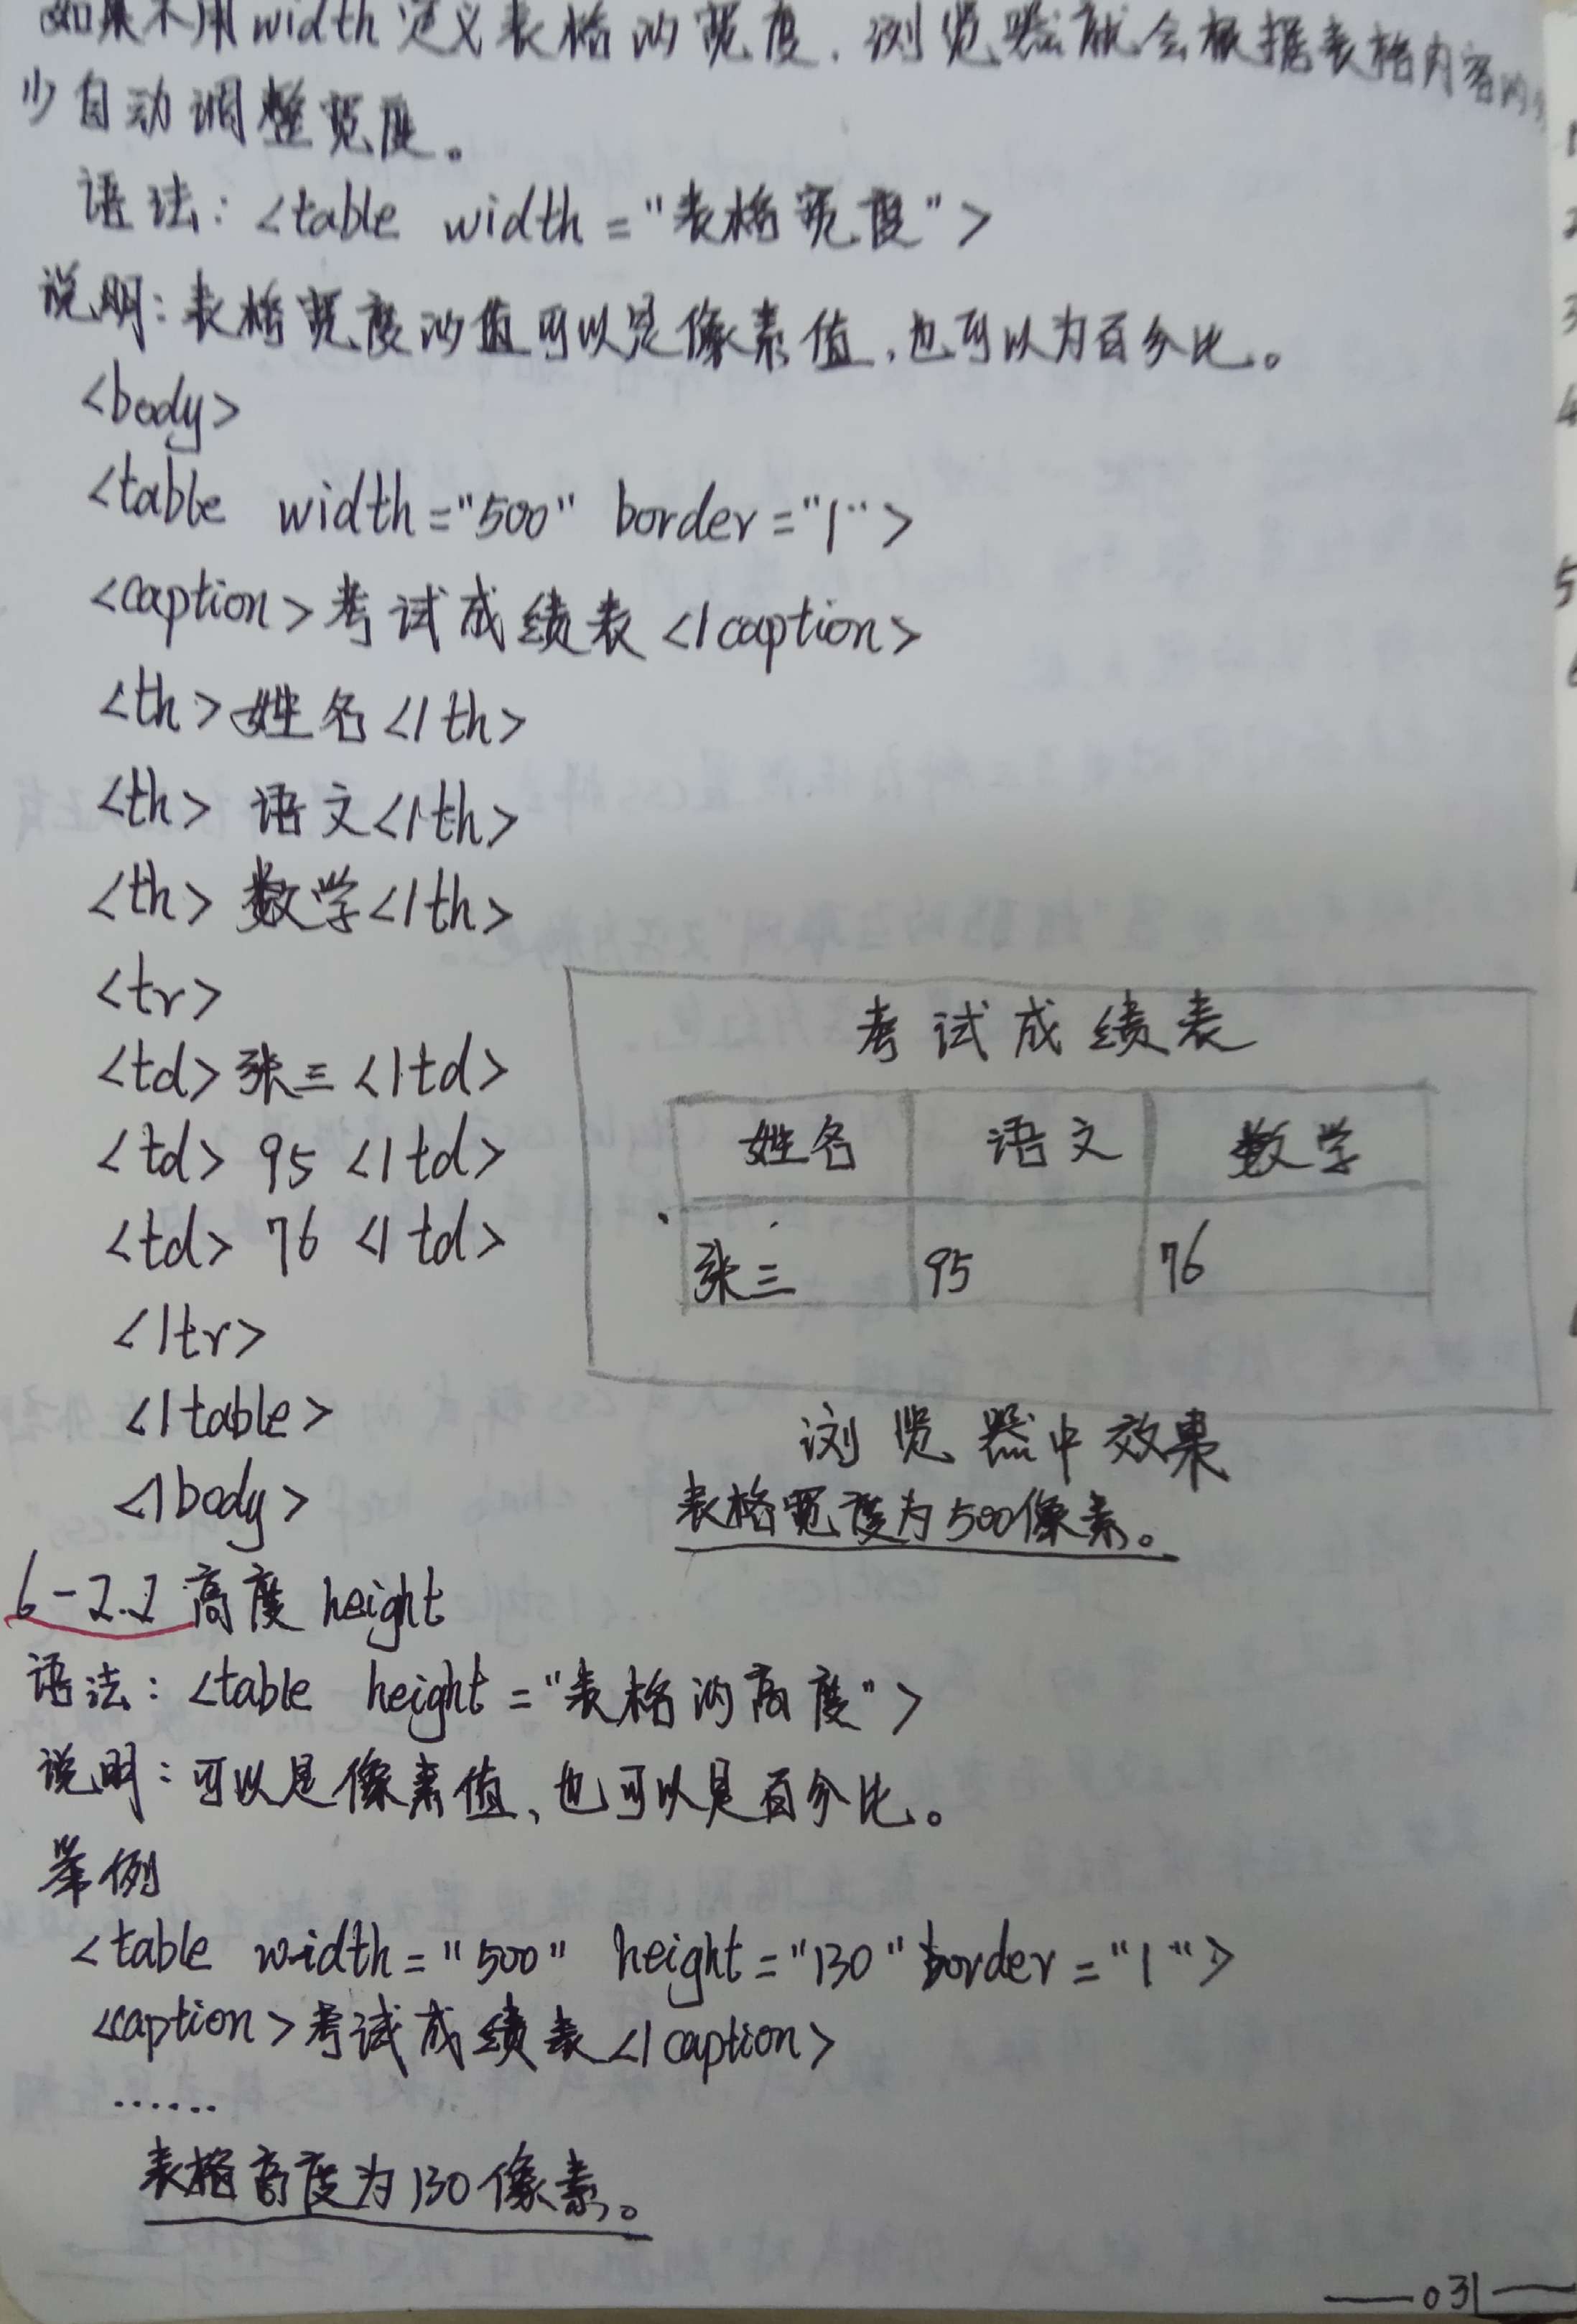 如果不用width定义表格的宽度,浏览器就会根据表格内容的
少自动调整宽度。
语法:<table width="表格宽度">
说明:表格宽度的值可以是像素值,也可以为百分比。
<body>
<table width="500" border="1">
<caption>考试成绩表</caption>
<th>姓名</th>
<th>语文</th>
<th>数学</th>
<tr>
<td>张三</td>
<td>95</td>
<td>76</td>
</tr>
</table>
</body>
考试成绩表
姓名 语文 数学
张三 95 76
浏览器中效果
表格宽度为500像素。
6-2.2 高度height
语法:<table height="表格的高度">
说明:可以是像素值,也可以是百分比。
举例
<table width="500" height="130" border="1">
<caption>考试成绩表</caption>
......
表格高度为130像素。
031